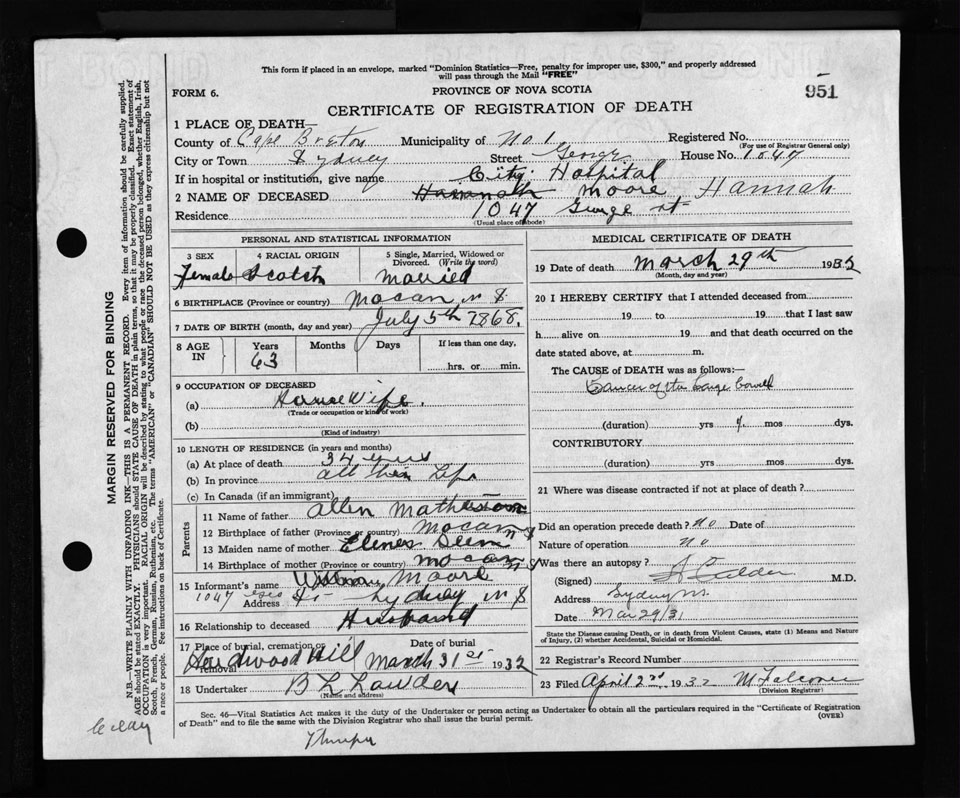 This form if placed in an envelope, marked "Dominion Statistics—Free, penalty for improper use, $300," and properly addressed
will pass through the Mail "FREE"
951
FORM 6.
PROVINCE OF NOVA SCOTIA
CERTIFICATE OF REGISTRATION OF DEATH
1 PLACE OF DEATH—
County of Cape Breton Municipality of No. 1 Registered No.
(For use of Registrar General only)
City or Town Sydney Street George House No. 1047
If in hospital or institution, give name City Hospital
2 NAME OF DECEASED Hannah Moore Hannah
Residence 1047 George St
(Usual place of abode)
PERSONAL AND STATISTICAL INFORMATION
3 SEX 4 RACIAL ORIGIN 5 Single, Married, Widowed or Divorced. (Write the word)
Female Scotch Married
6 BIRTHPLACE (Province or country) Macan N S.
7 DATE OF BIRTH (month, day and year) July 5th 1868.
8 AGE IN Years Months Days If less than one day,
63 hrs. or min.
9 OCCUPATION OF DECEASED
(a) House Wife.
(Trade or occupation or kind of work)
(b)
(Kind of industry)
10 LENGTH OF RESIDENCE (in years and months)
(a) At place of death 34 years
(b) In province all their Life
(c) In Canada (if an immigrant)
Parents
11 Name of father Allen
12 Birthplace of father (Province or country) Macan N S
13 Maiden name of mother
14 Birthplace of mother (Province or country) Macan N S
15 Informant's name Moore
Address 1047 Geo St. Sydney N S
16 Relationship to deceased Husband
17 Place of burial, cremation or removal Date of burial
Hardwood Hill March 31st 1932
18 Undertaker B L
(Name and address)
MEDICAL CERTIFICATE OF DEATH
19 Date of death March 29th 193
(Month, day and year)
20 I HEREBY CERTIFY that I attended deceased from
19 to 19 that I last saw
h alive on 19 and that death occurred on the
date stated above, at m.
The CAUSE of DEATH was as follows:—
Cancer of the Large Bowell
(duration) yrs mos dys.
CONTRIBUTORY
(duration) yrs. mos. dys.
21 Where was disease contracted if not at place of death?
Did an operation precede death? No Date of
Nature of operation No
Was there an autopsy?
(Signed) Calder M.D.
Address Sydney
Date Mar 29/31
State the Disease causing Death, or in death from Violent Causes, state (1) Means and Nature
of Injury, (2) whether Accidental, Suicidal or Homicidal.
22 Registrar's Record Number
23 Filed April 2nd 1932 M Falconer
(Division Registrar)
Sec. 46—Vital Statistics Act makes it the duty of the Undertaker or person acting as Undertaker to obtain all the particulars required in the "Certificate of Registration
of Death" and to file the same with the Division Registrar who shall issue the burial permit. (OVER)
MARGIN RESERVED FOR BINDING
N.B.—WRITE PLAINLY WITH UNFADING INK—THIS IS A PERMANENT RECORD. Every item of information should be carefully supplied.
AGE should be stated EXACTLY. PHYSICIANS should STATE CAUSE OF DEATH in plain terms, so that it may be properly classified. Exact statement of
OCCUPATION is very important. RACIAL ORIGIN will be described by stating to what people or race the deceased person belonged, whether English, Irish,
Scotch, French, German, Russian, Ruthenian, etc. The terms "AMERICAN" or "CANADIAN" SHOULD NOT BE USED as they express citizenship but not
a race or people. Fee instructions on back of Certificate.